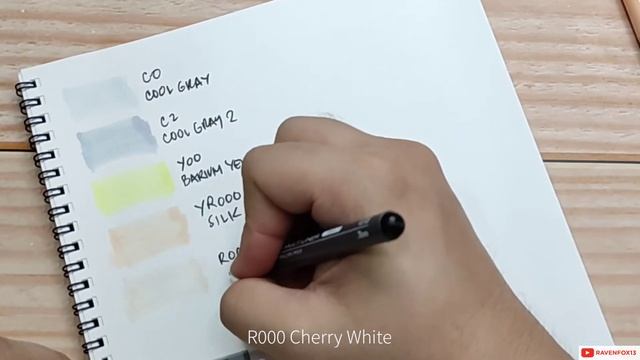 C0
COOL GRAY
C2
COOL GRAY 2
Y00
BARIUM YE
YR000
SILK
R00
R000 Cherry White
RAVENFOX13